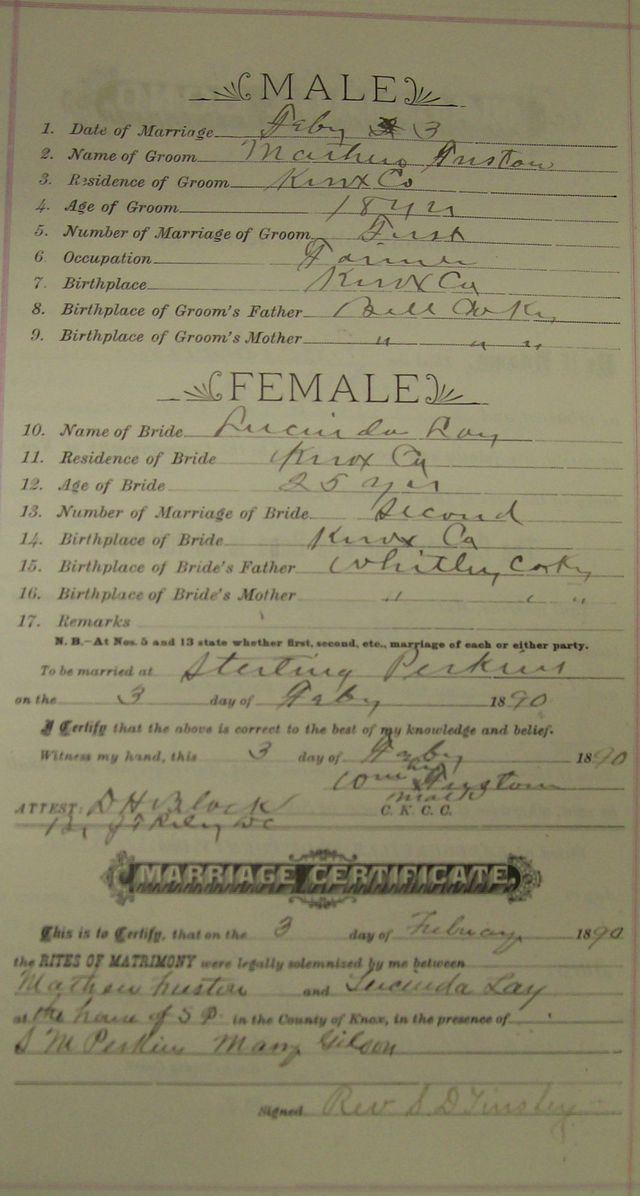 MALE
1. Date of Marriage Feby 3
2. Name of Groom
3. Residence of Groom Knox Co
4. Age of Groom 18 yrs
5. Number of Marriage of Groom First
6. Occupation Farmer
7. Birthplace Knox Co
8. Birthplace of Groom's Father Bell Co Ky
9. Birthplace of Groom's Mother " " "
FEMALE
10. Name of Bride Lucinda Lay
11. Residence of Bride Knox Co
12. Age of Bride 25 yrs
13. Number of Marriage of Bride Second
14. Birthplace of Bride Knox Co
15. Birthplace of Bride's Father Whitley Co Ky
16. Birthplace of Bride's Mother " " "
17. Remarks
N. B.—At Nos. 5 and 13 state whether first, second, etc., marriage of each or either party.
To be married at Sterling Perkins
on the 3 day of Feby 1890
I Certify that the above is correct to the best of my knowledge and belief.
Witness my hand, this 3 day of Feby 1890
his
mark
ATTEST: D H Black C. K. C. C.
By J T Riley DC
MARRIAGE CERTIFICATE.
This is to Certify, that on the 3 day of February 1890
the RITES OF MATRIMONY were legally solemnized by me between
and Lucinda Lay
at the house of S P. in the County of Knox, in the presence of
S M Perkins Mary Gibson
Signed Rev S. D Tinsley